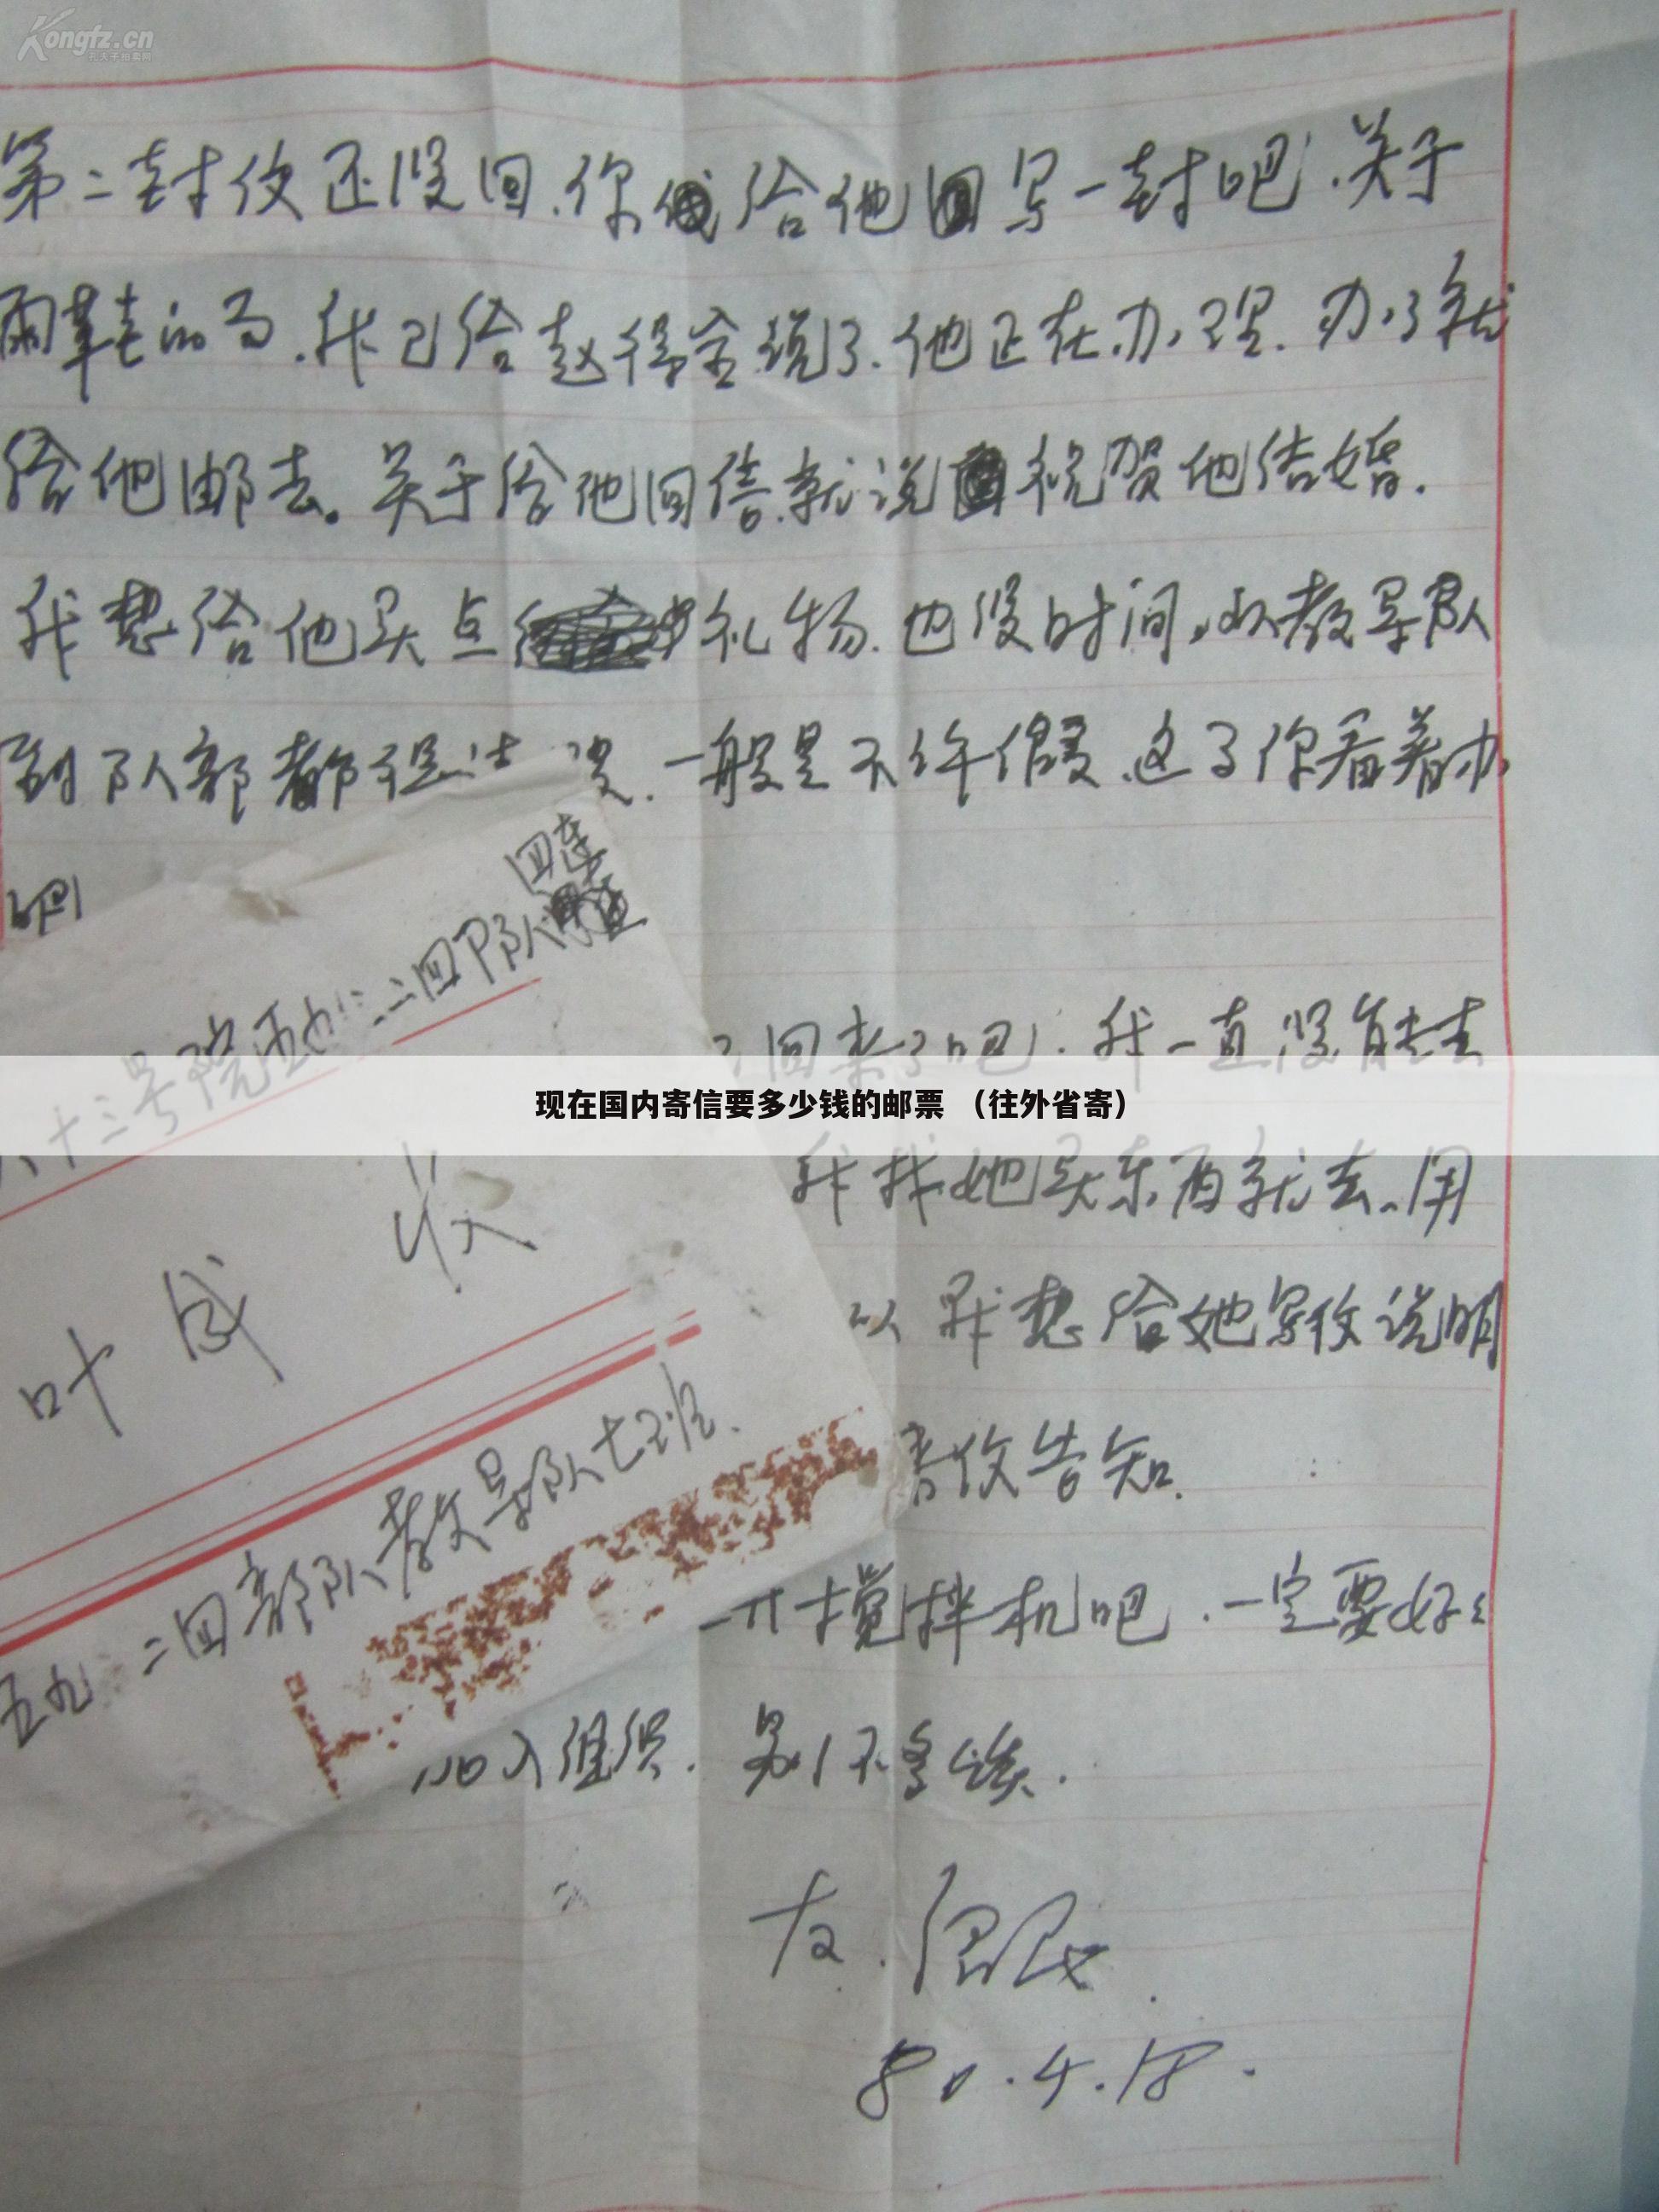 Kongfz.cn
孔夫子旧书网
第二封仪还没回.你给他写一封吧.关于
雨革走的了.我已给赵得全说了.他正在办理.办了就
给他邮去。关于给他回信.就说祝贺他结婚.
我想给他买点礼物.也没时间,从教导队
到队部都 一般是不许假.这了你看着办
四连
十三号院 二四部队
回来了吧.我一直没有去
现在国内寄信要多少钱的邮票 （往外省寄）
我找她买东西就去.用
叶成 收
以 我想给她写仪说明
二四部队教导队七班.
五九
仪告知.
开搅拌机吧.一定要好
加入组织. 别不多谈.
友.
80.4.18.